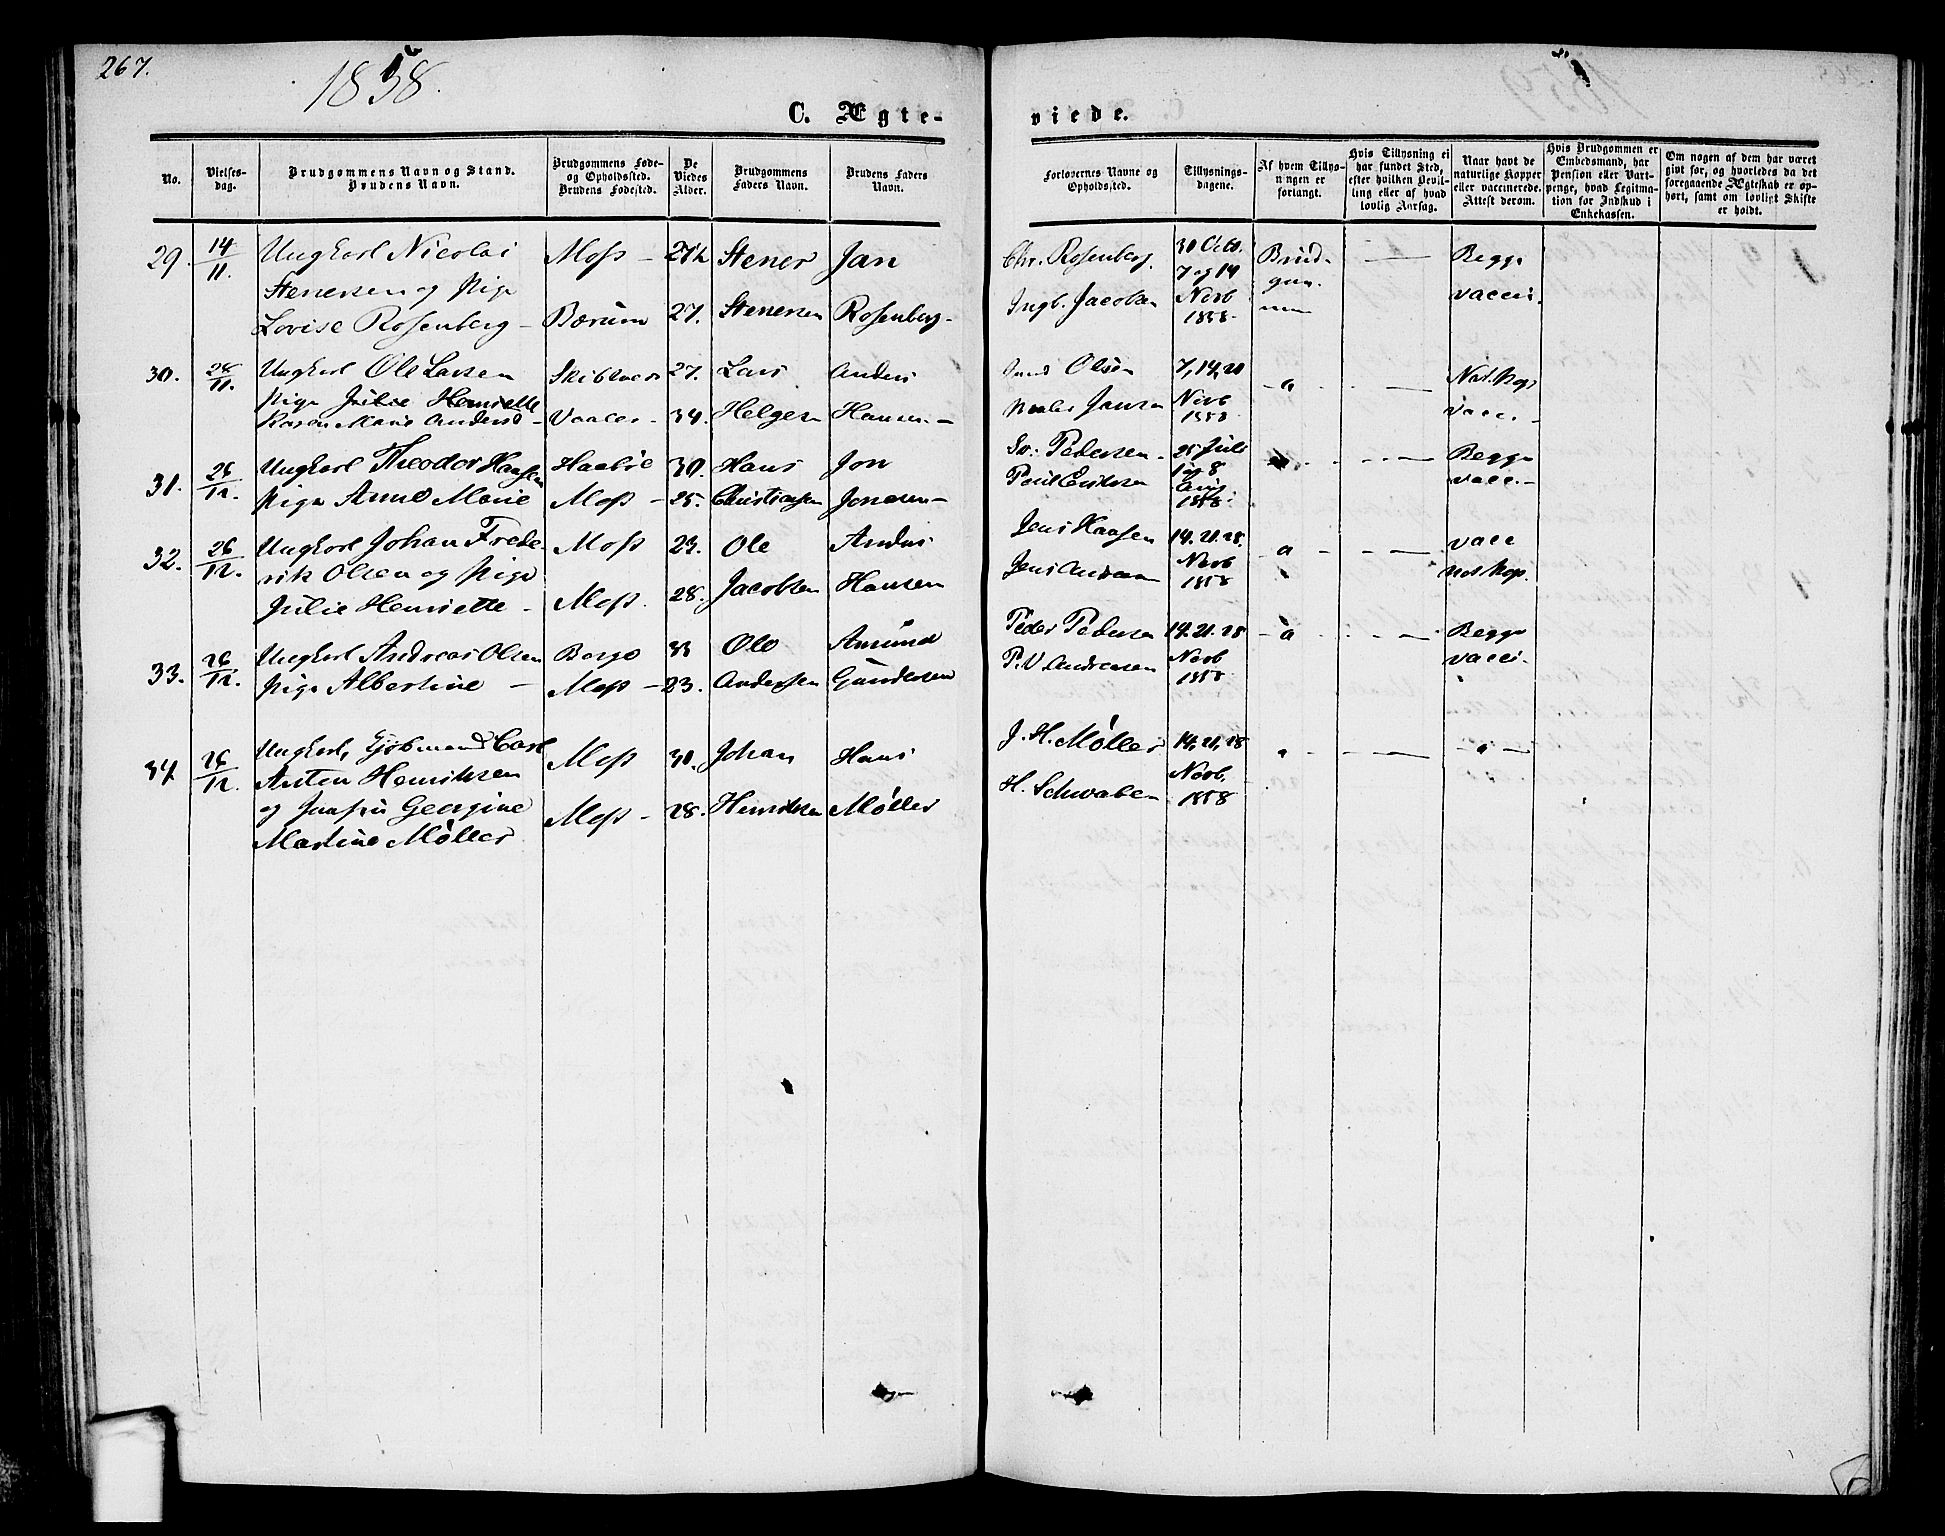 267.
1858.
C. Ægte-
viede.
No.
Vielses-
dag.
Brudgommens Navn og Stand.
Brudens Navn.
Brudgommens Føde-
og Opholdssted.
Brudens Fødested.
De
Viedes
Alder.
Brudgommens
Faders Navn.
Brudens Faders
Navn.
Forlovernes Navne og
Opholdssted.
Tillysnings-
dagene.
Af hvem Tillys-
ningen er
forlangt.
Hvis Tillysning ei
har fundet Sted,
efter hvilken Bevil-
ling eller af hvad
lovlig Aarsag.
Naar havt de
naturlige Kopper
eller vaccinerede.
Attest derom.
Hvis Brudgommen er
Embedsmand, har
Pension eller Vart-
penge, hvad Legitima-
tion for Indskud i
Enkekassen.
Om nogen af dem har været
givt før, og hvorledes da det
foregaaende Ægteskab er op-
hørt, samt om lovligt Skifte
er holdt.
29. 14/11. Ungkarl Nicolai Moss 27½ Stener Jan Chr. Rosenberg. 30 Octb. Brud- Begge
Stenersen og Pige 7 og 14 gom-
Lovise Rosenberg Bærum 27. Stenersen Rosenberg Ingb. Jacobsen Novb 1858. men vacci.
30. 28/11. Ungkarl Ole Larsen Skibtvet 27. Lars Anders Olsen 7, 14, 21 Nat. Kop.
Pige Julie Henriette
Karen Marie Anders Vaaler 34. Helgesen Hansen Jansen Novb 1858 vacc.
31. 26/12. Ungkarl Theodor Haagsen Haabøe 30. Hans Jon Sv. Pedersen 25 Juli Begge
Pige Anne Marie Moss 25. Christiansen Jonesen Poul Eriksen 1 og 8 Aug 1858 vacc.
32. 26/12. Ungkarl Johan Frede- Moss 23. Ole Anders Jens Haagsen 14. 21. 28. vacc
rik Olsen og Pige
Julie Henriette Moss. 28. Jacobsen Hansen Jens Andersen Novb 1858 nat. Kop.
33. 26/12. Ungkarl Andreas Olsen Borge 33 Ole Amund Peder Pedersen 14. 21. 28 Begge
Pige Albertine Moss 23. Andersen Gundersen P. V. Andresen Novb 1858 vacci.
34 26/12. Ungkarl, Gjøbmand Carl Moss 30. Johan Hans J. H. Møller 14, 21, 28
Anton Henriksen
og Jomfru Georgine Moss 28. Henriksen Møller H. Schwaben Novb. 1858
Martine Møller.